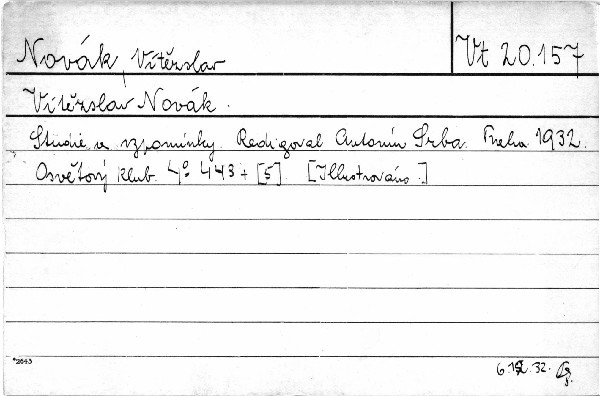 Novák, Vítězslav
Vt 20.157
Vítězslav Novák.
Studie a vzpomínky. Redigoval Antonín Srba. Praha 1932.
Osvětový klub. 4° 443 + [5]. [Illustrováno.]
*2643
32.